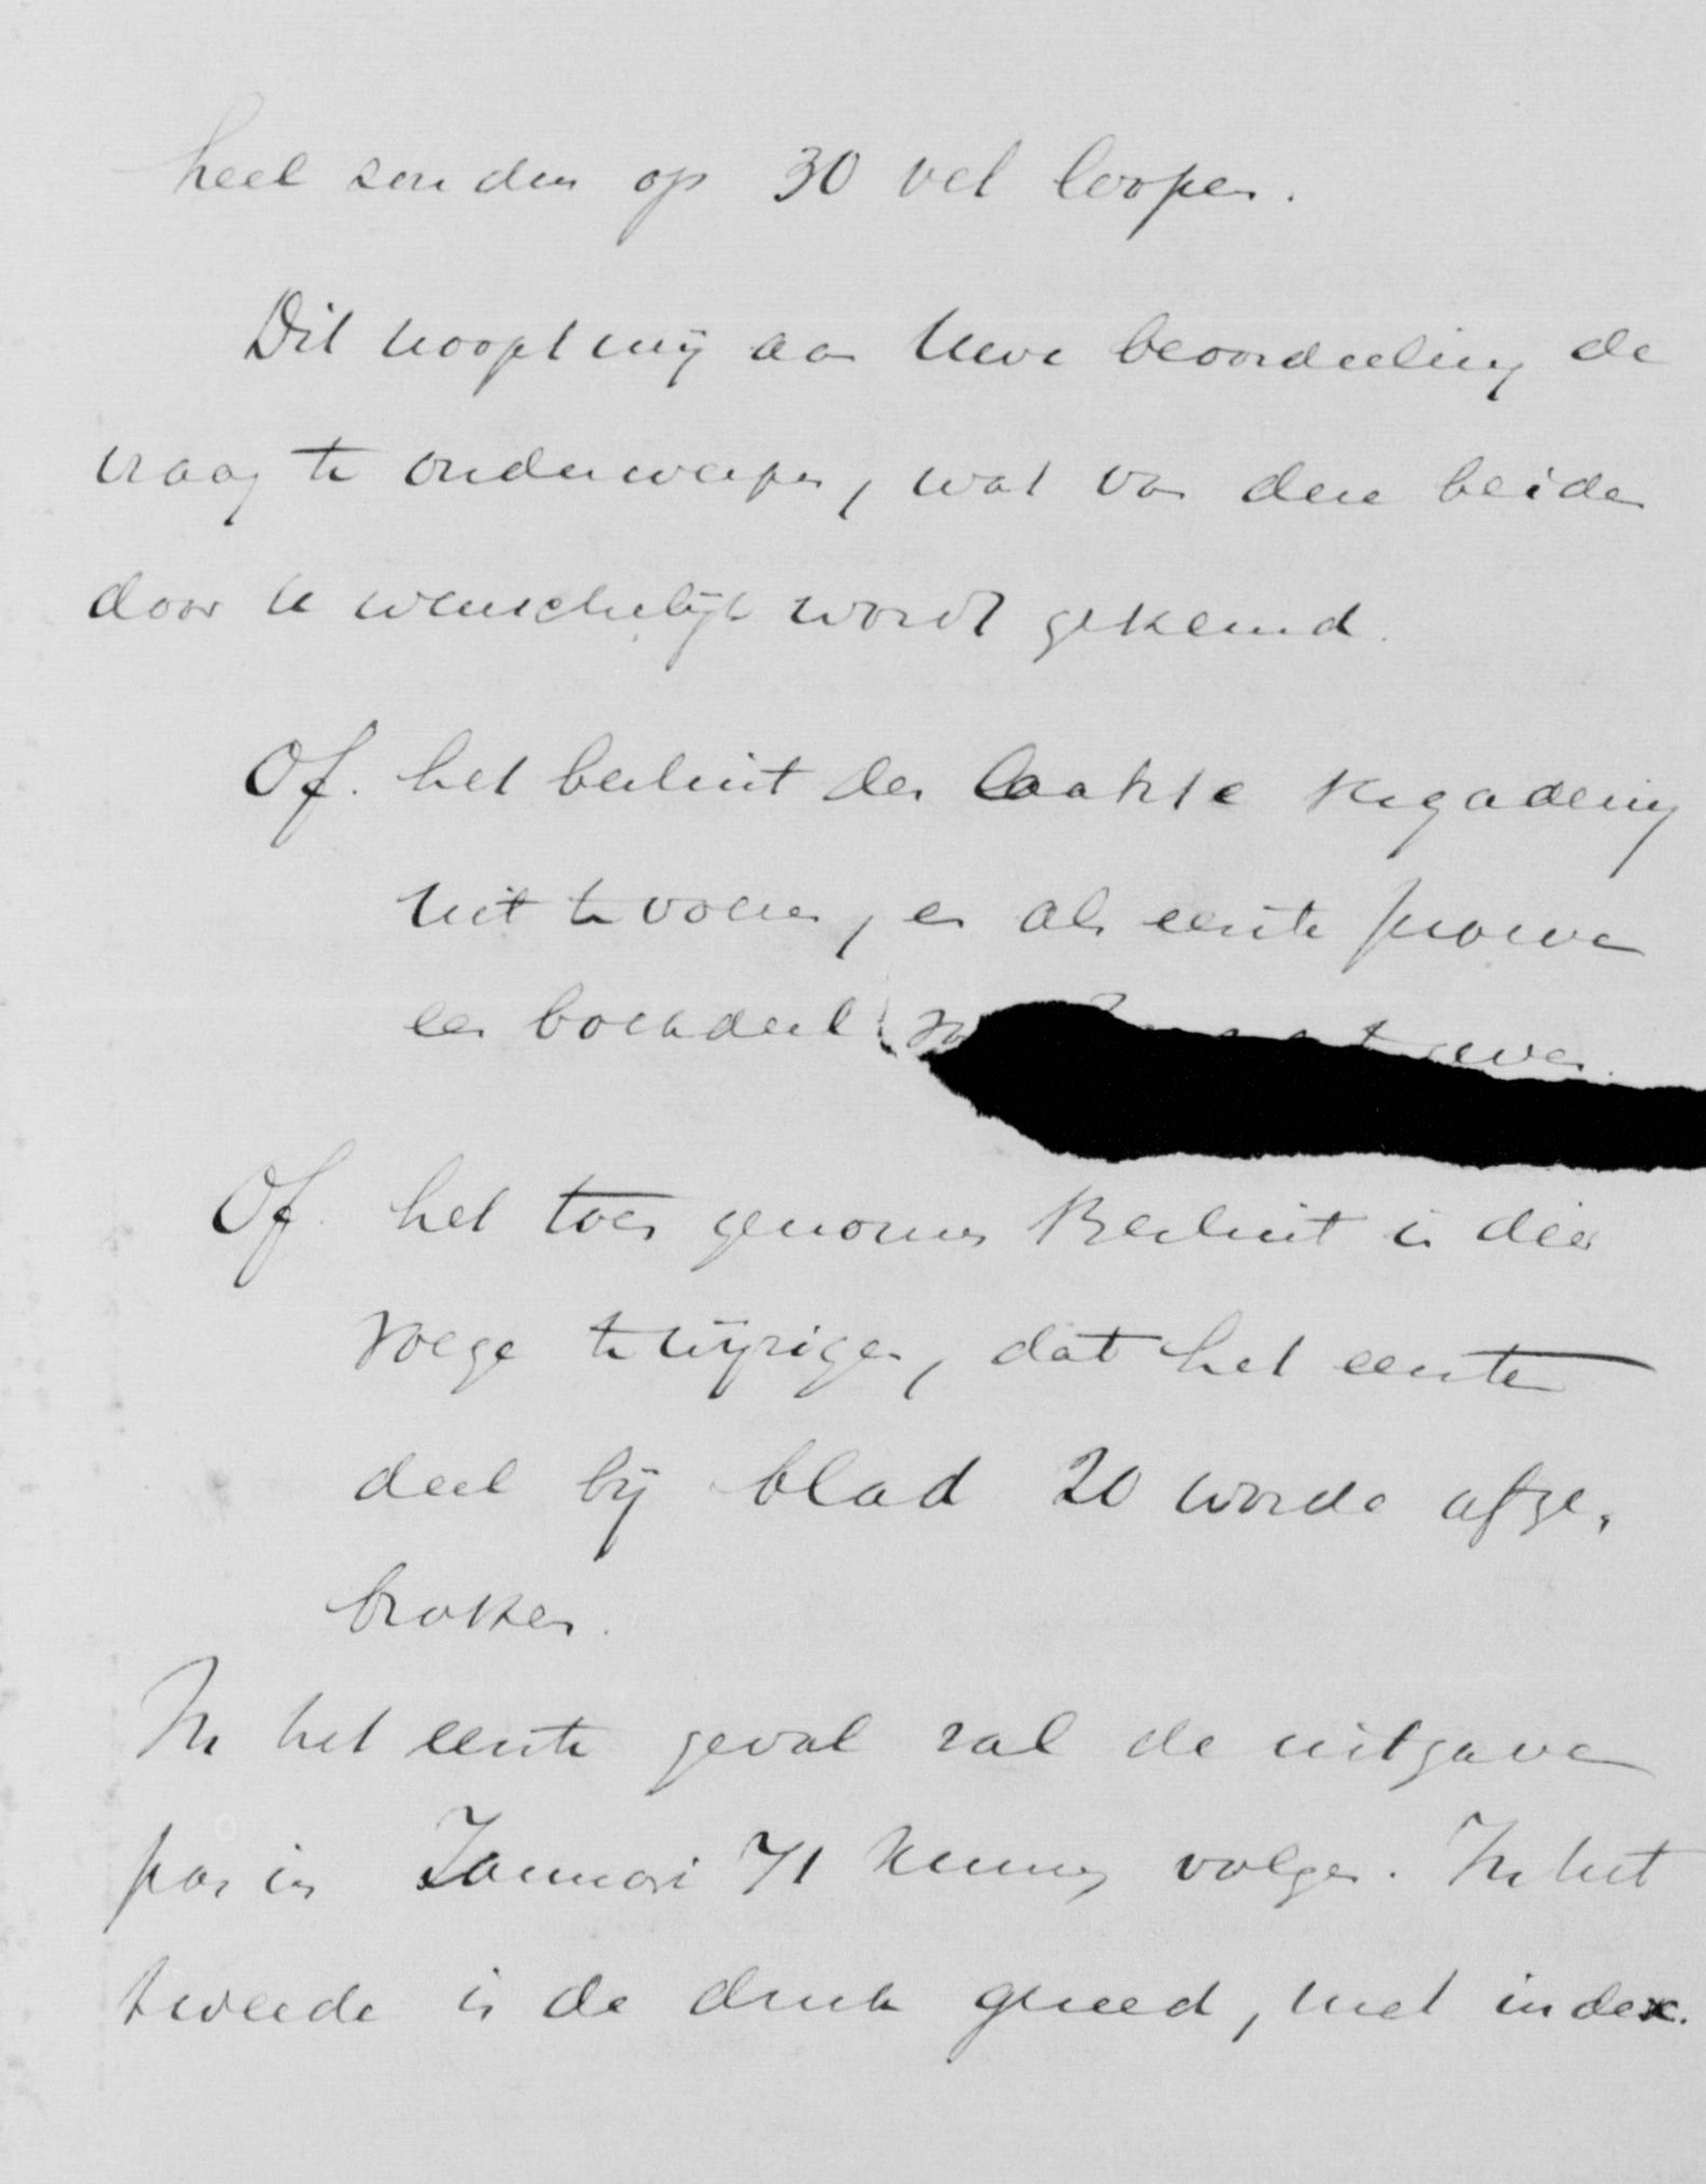 heel zouden op 30 vel loopen.
Dit noopt mij aan Uwe beoordeeling de
vraag te onderwerpen, wat van deze beiden
door U wenschelijk wordt gekeurd.
Of. het besluit der laatste Vergadering
uit te voeren, en als eerste proeve
een boekdeel
Of. het toen genomen Besluit in dier
voege te wijzigen, dat het eerste
deel bij blad 20 worde afge-
broken.
In het eerste geval zal de uitgave
pas in Januari 71 kunnen volgen. In het
tweede is de druk gereed, met index.